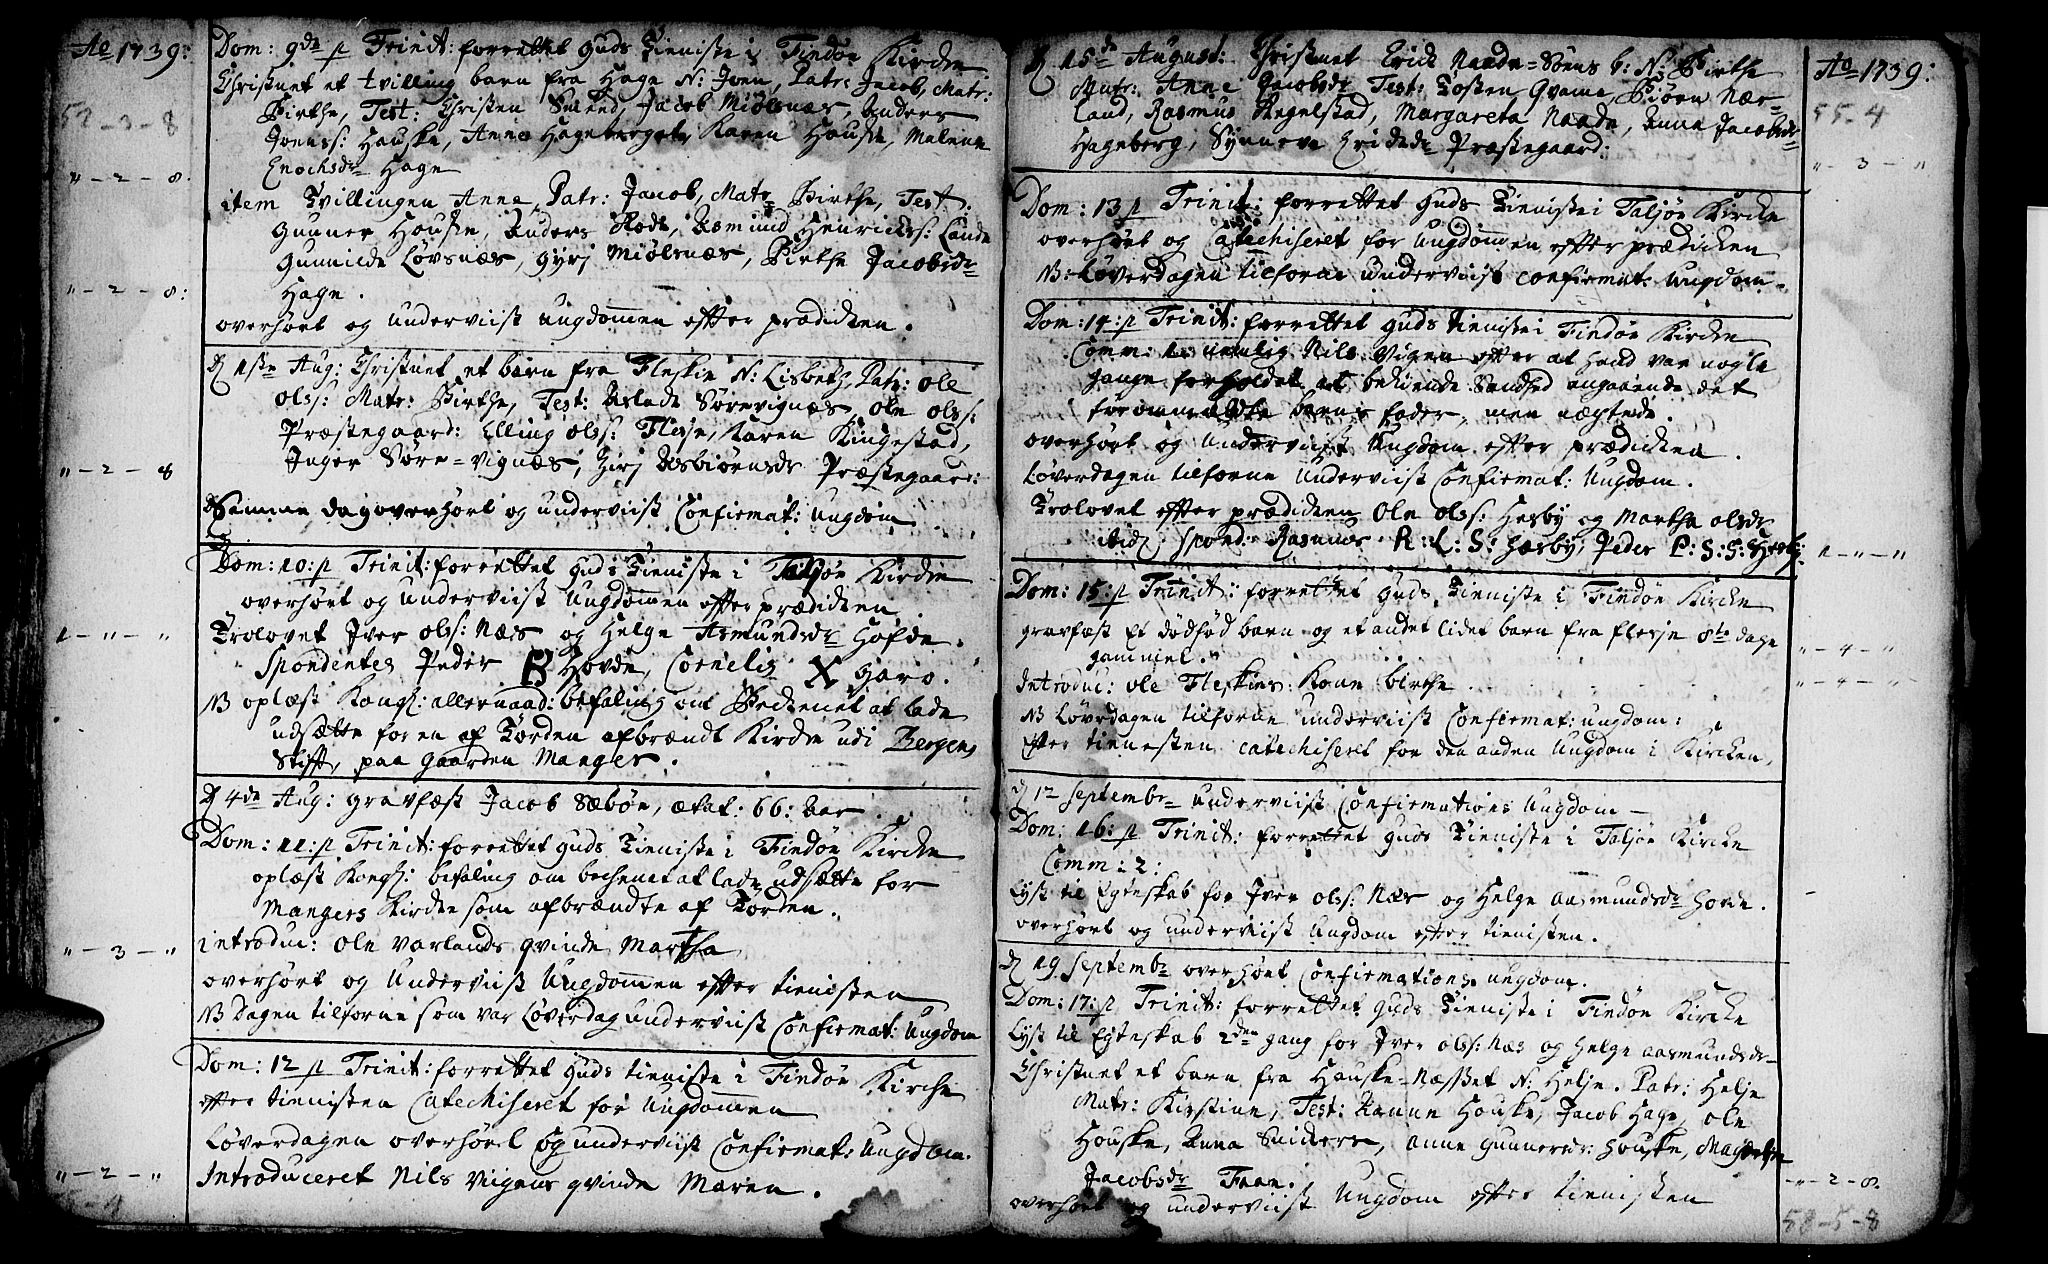 Ao 1739:
Dom: 9de p Trinit: forrettet Guds Tieniste i Findöe Kircke
Christnet et tvilling barn fra Hage N: Joen, Patr: Jacob, Matr:
Birthe, Test: Christen Smed, Jacob Miölsnæs, Anders
52 - 3 - 8
Joenss: Hauske, Anna Hageberget, Karen Houske, Malene
Enochsdr Hage
" - 2 - 8.
item Tvillingen Anne, Patr: Jacob, Matr Birthe, Test.
Gunner Houske, Anders Rode, Asmund Henrickss: Lande
Gunnilde Lövsnæs, Gyrj Miölsnæs, Birthe Jacobsdr
Hage.
" - 2 - 8:
overhört og underviist ungdommen effter prædicken.
D 1ste Aug: Christnet et barn fra Fleskie N: Lisbeth, Patr: Ole
Olss: Matr: Birthe, Test: Aslack Sörevignæs, Ole Olss:
Præstegaard: Elling Olss: Flesje, Karen Kingestad,
Inger Söre-vignæs, Girj Asbiörnsdr Præstegaard:
" - 2 - 8
Samme dag overhört og underviist Confirmat: Ungdom
Dom: 10: p Trinit: forrettet Guds Tieniste i Taljöe Kircke
overhört og underviist Ungdommen effter prædicken
Trolovet Iver Olss: Næs og Helge Asmundsdr Hofde.
1 - " - "
Spondentes Peder B Hovde, Cornelis X Garo.
NB oplæst Kongl: allernaad: befaling om Beckenet at lade
udsætte for en af Torden afbrændt Kircke udi Bergens
Stift, paa gaarden Manger.
D 4de Aug: gravfæst Jacob Sæböe, ætat: 66: aar
Dom: 11: p Trinit: forrettet Guds Tieniste i Findöe Kircke
oplæst Kongl: befaling om bechenet at lade udsætte for
Mangers Kircke som afbrændte af Torden.
introduc: Ole Varlands qvinde Martha
" - 3 - "
overhört og Underviist Ungdommen effter tienisten
NB Dagen tilforne som var Löverdag underviist Confirmat: Ungdom
Dom: 12 p Trinit: forrettet Guds tieniste i Findöe Kirche
effter tienisten Catechiseret for Ungdommen
Löverdagen overhört og underviist Confirmat: Ungdom.
Introduceret Nils Vigens qvinde Maren.
" - 2 - "
Ao 1739:
D 15de August: Christnet Erick Naade-Söens b: N: Birthe
Matr: Anne Jacobsdr Test: Tosten Qvame Biörn Nær-
land, Rasmus Regelstad, Margareta Naade, Anna Jacobsdr
55 - 4
Hageberg, Synneve Ericksdr Præstegaard:
" - 3 - "
Dom: 13 p Trinit: forrettet Guds Tieniste i Taljöe Kircke
overhört og Catechiseret for Ungdommen effter prædicken
NB: Löverdagen tilforne underviist confirmat: Ungdom
Dom: 14: p Trinit: forrettet Guds tieniste i Findöe Kircke
Comm: 1. nemlig Nils Vigen effter at hand var nogle
gange forholdet at bekiende Sandhed angaaende det
foromældte barns fader, men nægtede.
overhört og Underviist Ungdom effter prædicken.
Löverdagen tilforne Underviist Confirmat: Ungdom.
Trolovet effter prædicken Ole Olss: Hesby og Martha Olsdr
ibid, Spond: Rasmus R: L: S: Hæsby, Peder P: S: G: Hesby.
1 - " - "
Dom: 15: p Trinit: forrettet Guds Tieniste i Findöe Kircke
gravfæst Et dödföd barn og et andet lidet barn fra Flesje 8te dage
gammel.
" - 4 - "
Introduc: Ole Fleskies Kone birthe.
" - 4 - "
NB Löverdagen tilforne underviist Confirmat: ungdom:
Efter tienesten catechiseret for den anden Ungdom i Kircken,
D 12 Septembr Underviist Confirmations Ungdom
Dom: 16: p Trinit: forrettet Guds Tieniste i Taljöe Kircke
Comm: 2:
Lyst til Egteskab for Iver Olss: Næs og Helge Aasmundsdr Hovde.
overhört og underviist Ungdom effter tienisten.
D 19 Septembr overhört Confirmations ungdom.
Dom: 17: p Trinit: forrettet Guds Tieniste i Findöe Kircke
Lyst til Egteskab 2den gang for Iver Olss: Næs og Helge Aasmundsdr
Christnet et barn fra Hauske-Næsset N: Helje. Patr: Helje
Matr: Kirstine, Test: Ranne Houske, Jacob Hage, Ole
Houske, Anna Snickers, Anne Gunnersdr: Houske, Magdele
Jacobsdr Faae.
" - 2 - 8.
overhört og underviist Ungdom effter tienisten
58 - 5 - 8